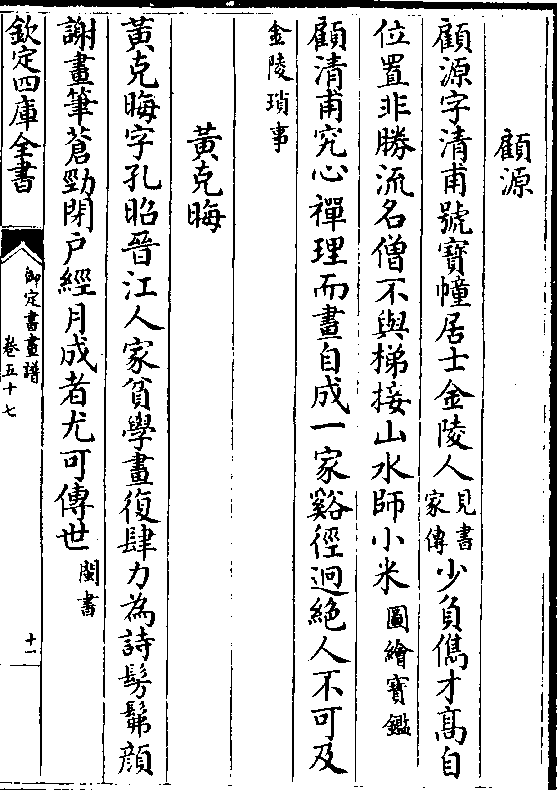 顧源
顧源字清甫號寳幢居士金陵人見書家傳少負儁才髙自
位置非勝流名僧不與梯接山水師小米圖繪寳鑑
顧清甫究心禪理而畫自成一家谿徑迥絶人不可及
金陵瑣事
黃克晦
黃克晦字孔昭晉江人家貧學畫復肆力為詩髣髴顔
謝畫筆蒼勁閉戸經月成者尤可傳世閩書
欽定四庫全書
御定書畫譜
卷五十七
十一